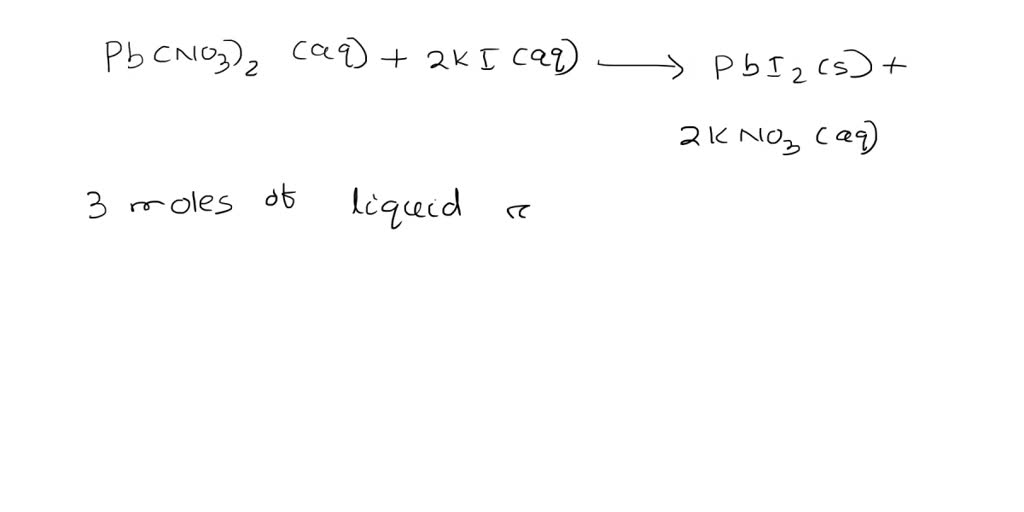 Pb(NO₃)₂ (aq) + 2KI (aq) ⟶ PbI₂ (s) +
2KNO₃ (aq)
3 moles of liquid r